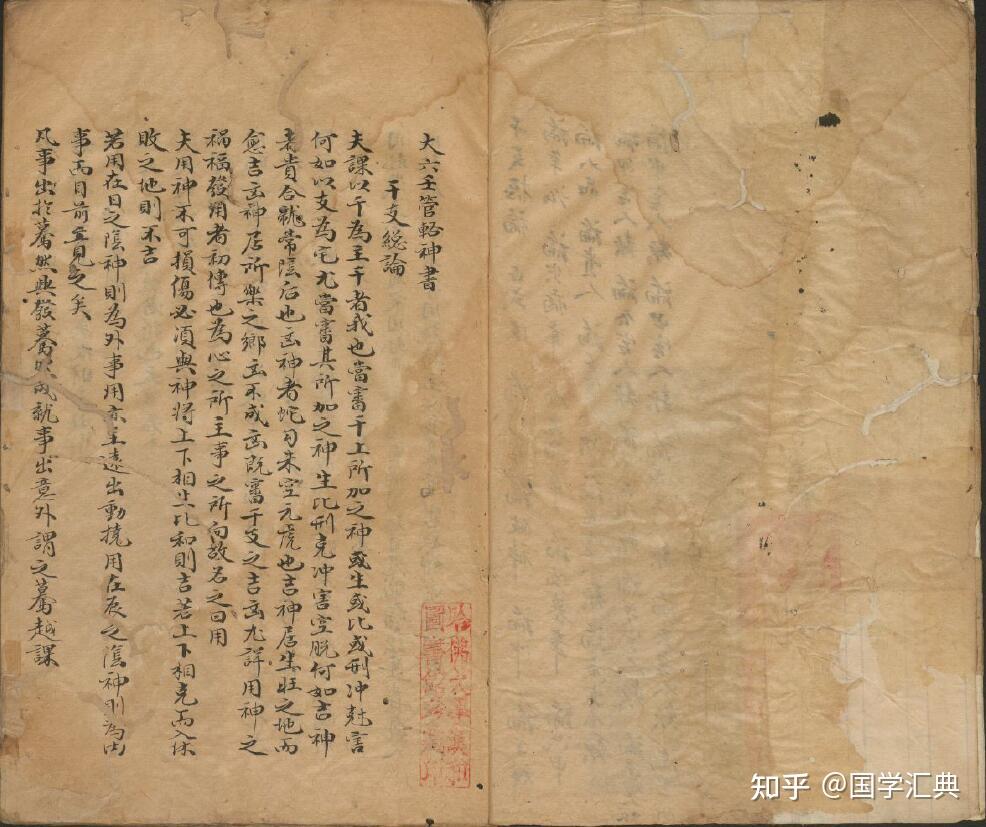 大六壬管輅神書
干支総論
夫課以干為主干者我也當審干上所加之神或生或比或刑冲尅害
何如以支為宅尤當審其所加之神生比刑克冲害空脱何如吉神
者貴合龍常陰后也凶神者蛇勾朱空元虎也吉神居生旺之地而
愈吉凶神居所樂之鄉凶不成凶既審干支之吉凶尤詳用神之
禍福發用者初傳也為心之所主事之所向故名之曰用
夫用神不可損傷必須與神將上下相生比和則吉若上下相克而入休
敗之地則不吉
若用在日之陰神則為外事用亦主遠出動撓用在辰之陰神則為内
事而目前立見之矣
凡事出於驀然興發驀然成就事出意外謂之驀越課
哈佛大學漢和圖書館珍藏印
知乎 @国学汇典